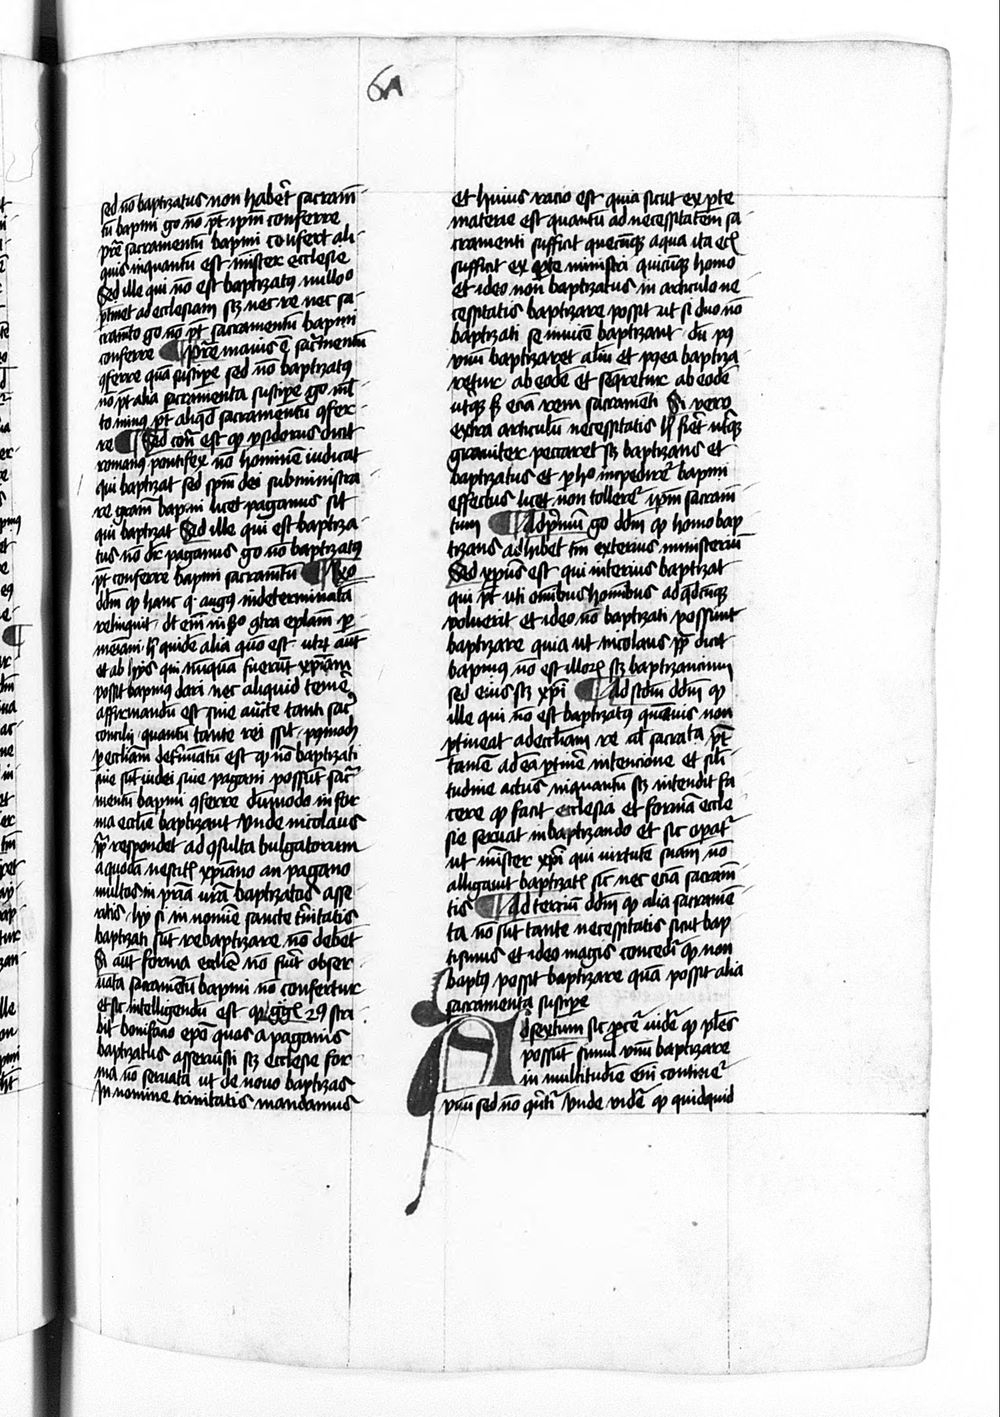 61
sed nō baptizatus non habet̄ sacram̄
tū bapmi go nō pt̄ ip̄m conferre
pr̄e sacramentū bapmi confert ali
quis inquantū est mister ecclesie
Sed ille qui nō est baptizatꝰ nullo
ptinet ad ecclesiam scz nec re nec sa
cramto go nō pt̄ sacramentū bapmi
conferre pr̄e maius ē sacrmentū
ꝯferre quā suscipe sed nō baptizatꝰ
nō pt̄ alia sacramenta suscipe go ml̄
to minꝰ pt̄ aliqđ sacramentū ꝯfer
re Sed con̄ est qꝫ ysidorus dicit
romanꝰ pontifex nō hominē iudicat
qui baptizat sed spm̄ dei subministra
re gram̄ bapmi licet paganus sit
qui baptizat Sed ille qui est baptiza
tus nō dr̄ paganus go nō baptizatꝰ
pt̄ conferre bapmi sacramtū Rō
dđm qꝫ hanc q̄ augꝰ indeterminatā
relinquit dt eni in ꝯ̄ gtra eplam p
meniani h̄ quidē alia quo est utrū aut̄
et ab hijs qui nūqua fuerūt xpiani
possit bapmꝰ dari nec aliquid temē
affirmandū est sine aucte tanti sac̄
concilij quantū tante rei ssit pꝰmodū
p eccliam detr̄minatū est qꝫ nō baptizati
siue sint iudei siue pagani possūt sac̄
mentū bapmi ꝯferre dūmodo in for
ma ecclīe baptizant Vnde nicolaus
pp̄ respondet ad ꝯsulta bulgarorum
a quodā nescitis xpiano an pagano
multos in pr̄ia vr̄a baptizatos asse
ritis hij si in nomīe sancte tr̄nitatis
baptizati sūt rebaptizare nō debet̄
Si aut̄ forma ecclīe nō fuit obser
uata sacramentū bapmi nō confertur
et sic intelligendū est qꝫ ggꝰ 29 scri
bit bonifacio epō quos a paganis
baptizatus asseruisti scz ecclesie for
ma nō seruata ut de nouo baptizas
In nomine trinitatis mandamus
et huius racio est quia sicut ex pte
materie est quantū ad necessitatem sa
cramenti sufficit quecūqꝫ aqua ita ecī
sufficit ex pte ministri quicūqꝫ homo
et ideo non baptizatus in articulo ne
cessitatis baptizare possit ut si duo nō
baptizati se inuicē baptizant dū pꝰ
vnū baptizaret aliū et pꝰea baptiza
retur ab eodē et seqretur ab eodē
utqꝫ h̄ eciā rem sacramēti Si vero
extra articulū necessitatis h̄ fier̄ utqꝫ
grauiter peccaret scz baptizans et
baptizatus et p ho impedirer̄ bapmi
effectus licet non tollerer̄ ip̄m sacram̄
tum Ad pmū go dđm qꝫ homo bap
tizans adhibet tm̄ exterius ministeriū
Sed xpus est qui interius baptizat
qui pt̄ uti omibus homibus ad qđcūqꝫ
voluerit et ideo nō baptizati possunt
baptizare quia ut nicolaus pp̄ dicit
bapmꝰ nō est illorꝫ scz baptizancium
sed eius scz xpi Ad scdm dđm qꝫ
ille qui nō est baptizatꝰ quauis non
ptineat ad eccliam re ul̄ sacrata pt̄
tamē ad eā ptinē intencione et sili
tudine actus inquantū scz intendit fa
cere qꝫ facit ecclesia et formā eccle
sie seruat in baptizando et sic opat̄
ut mister xpi qui virtutē suam nō
alligauit baptizatꝫ sic nec eciā sacram̄
tis Ad terciū dđm qꝫ alia sacramē
ta nō sūt tante necessitatis sicut bap
tismus et ideo magis concedit̄ qꝫ non
baptꝰ possit baptizare quā possit alia
sacramenta suscipe
Ad sextum sic pcer̄ uidet̄ qꝫ ples
possūt simul vnū baptizare
in multitudīe eni continer̄
vnū sed nō ꝯuer̄ Vnde videt̄ qꝫ quidquid